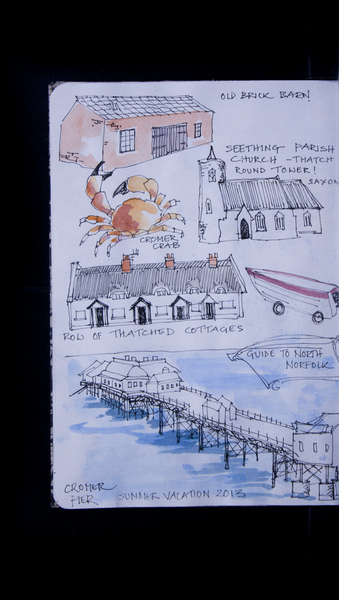 OLD BRICK BARN!
SEETHING PARISH
CHURCH - THATCH
ROUND TOWER!
SAXON
CROMER
CRAB
ROW OF THATCHED COTTAGES
GUIDE TO NORTH
NORFOLK
CROMER
PIER
SUMMER VACATION 2013